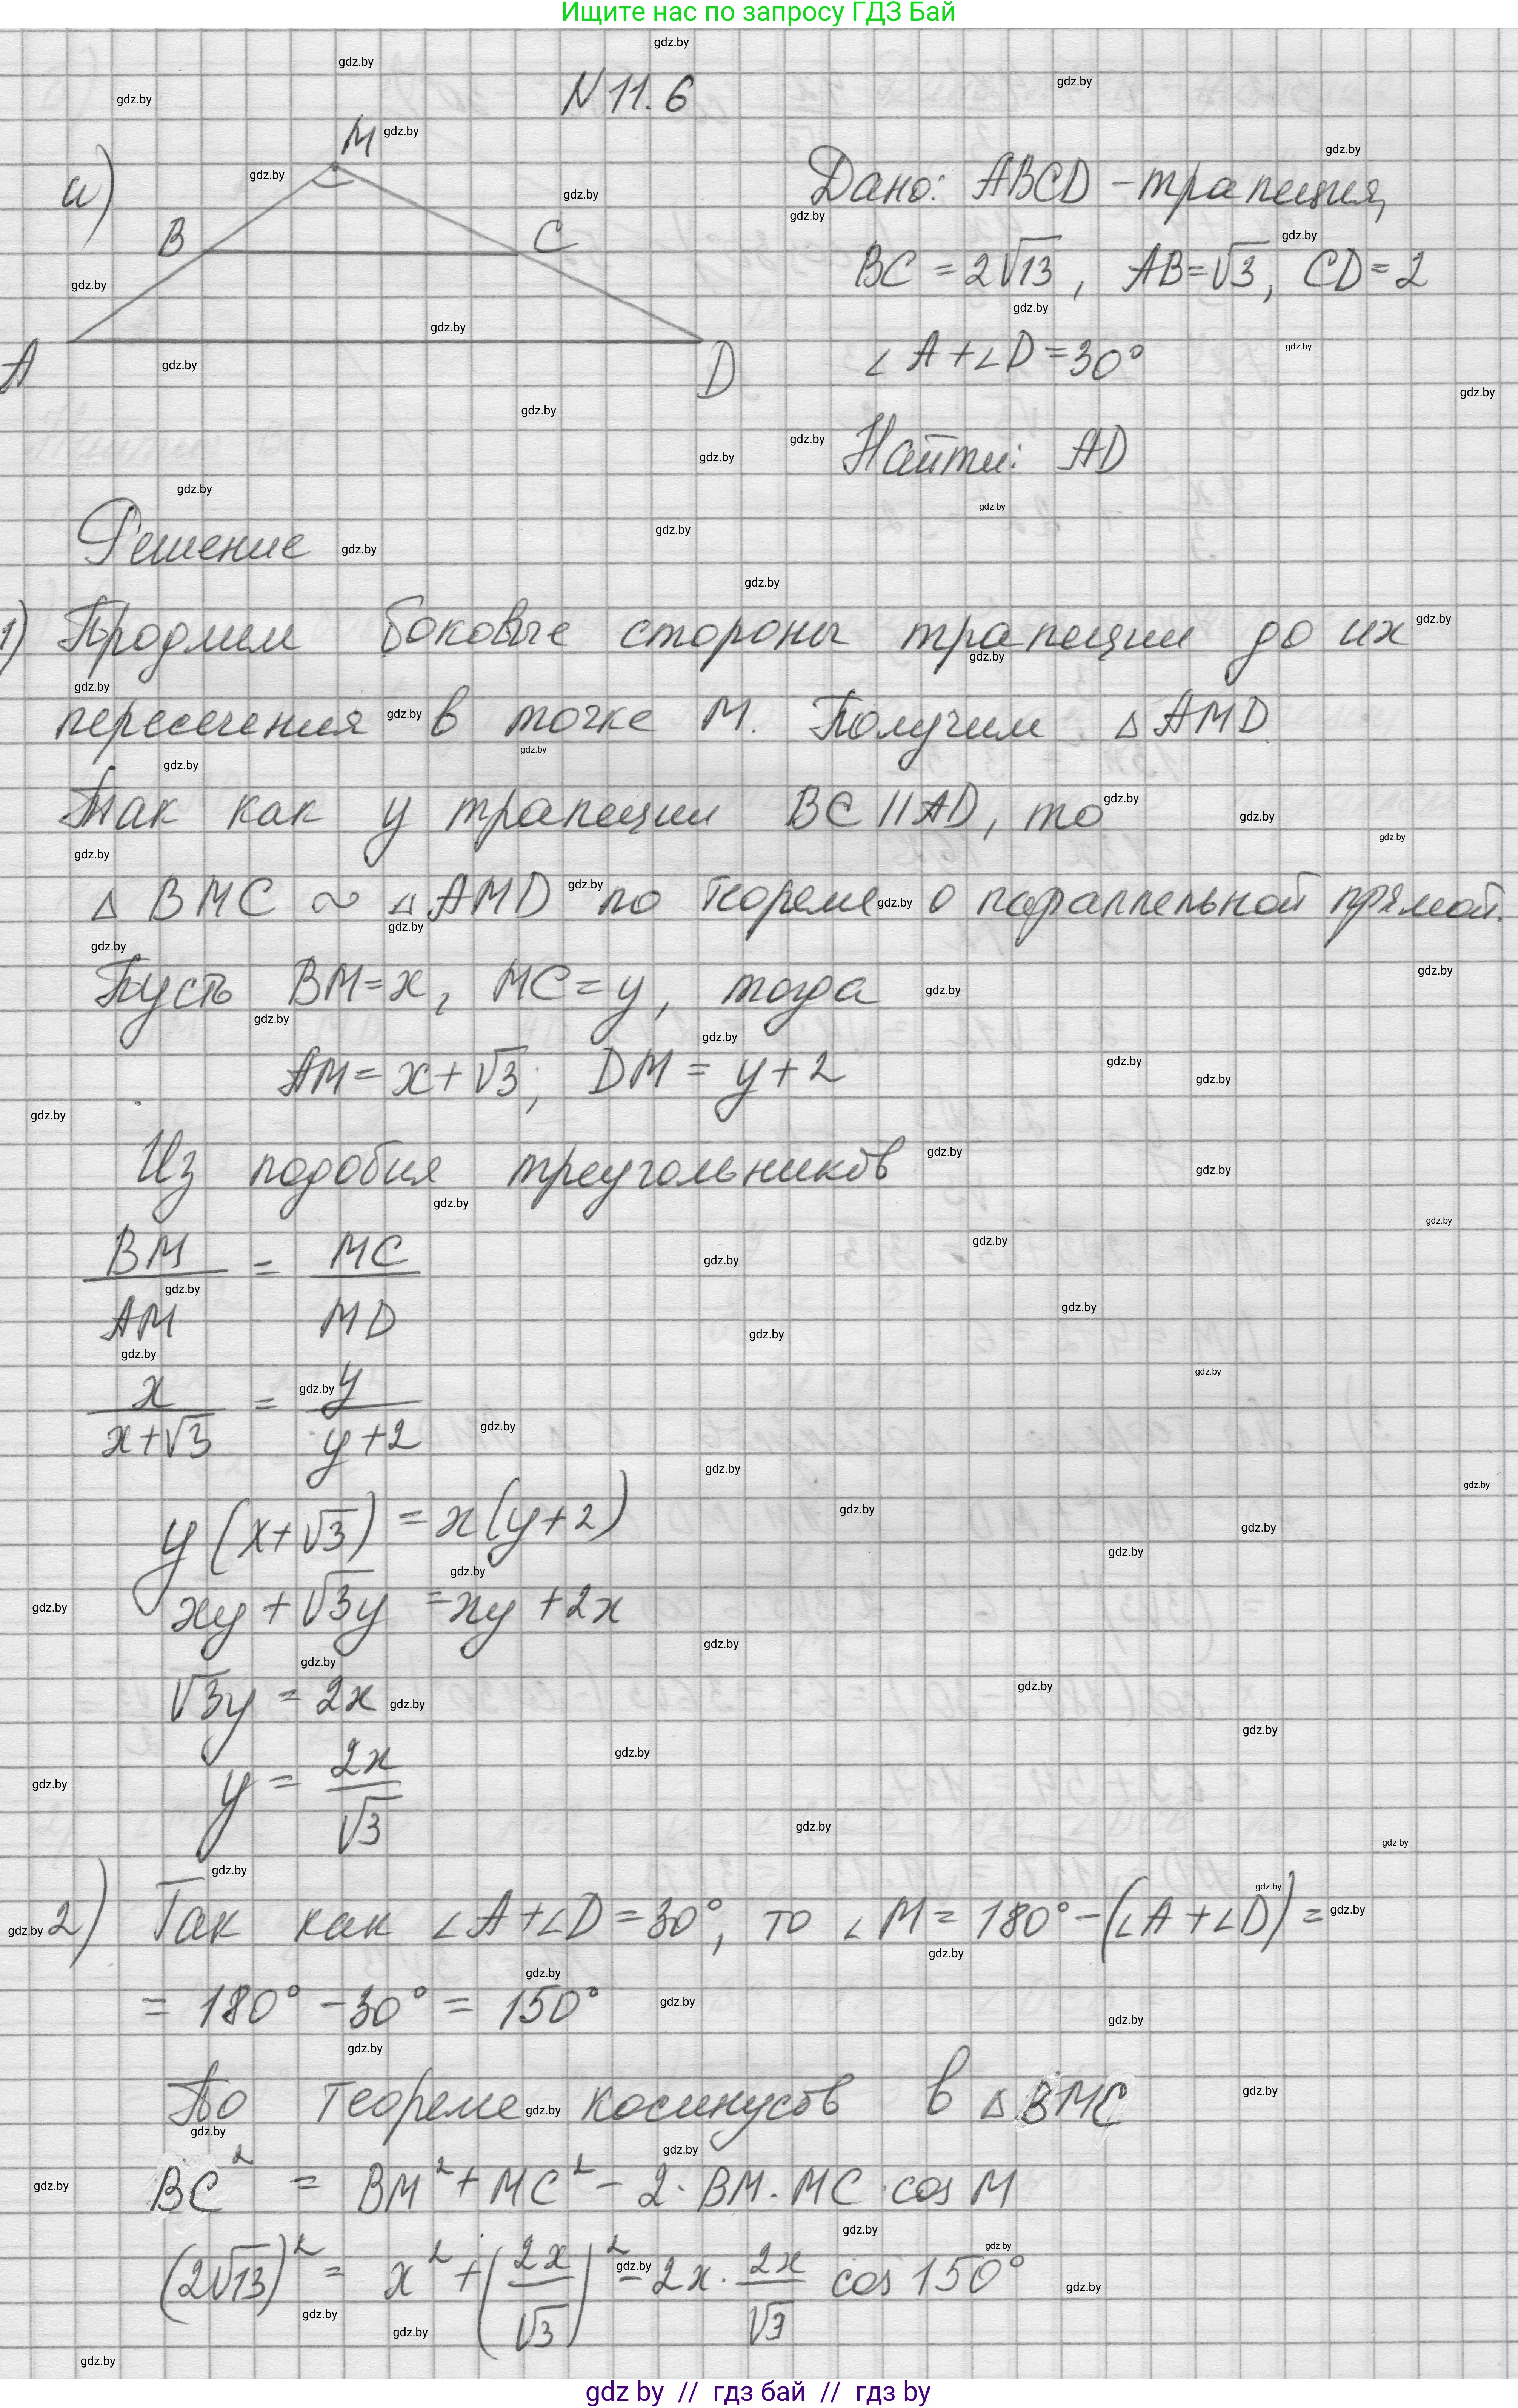 Ищите нас по запросу ГДЗ Бай
N 11.6
а)
M
B
C
A
D
Дано: ABCD - трапеция,
BC = 2√13, AB=√3, CD=2
∠A+∠D=30°
Найти: AD
Решение
1) Продлим боковые стороны трапеции до их
пересечения в точке M. Получим △AMD.
Так как у трапеции BC||AD, то
△BMC ~ △AMD по теореме о параллельной прямой.
Пусть BM=x, MC=y, тогда
AM=x+√3; DM=y+2
Из подобия треугольников
BM/AM = MC/MD
x/(x+√3) = y/(y+2)
y(x+√3)=x(y+2)
xy+√3y=xy+2x
√3y=2x
y=2x/√3
2) Так как ∠A+∠D=30°, то ∠M=180°-(∠A+∠D)=
=180°-30°=150°
По теореме косинусов в △BMC
BC²=BM²+MC²-2·BM·MC·cos M
(2√13)²=x²+(2x/√3)²-2x·2x/√3 cos 150°
gdz by // гдз бай // гдз by